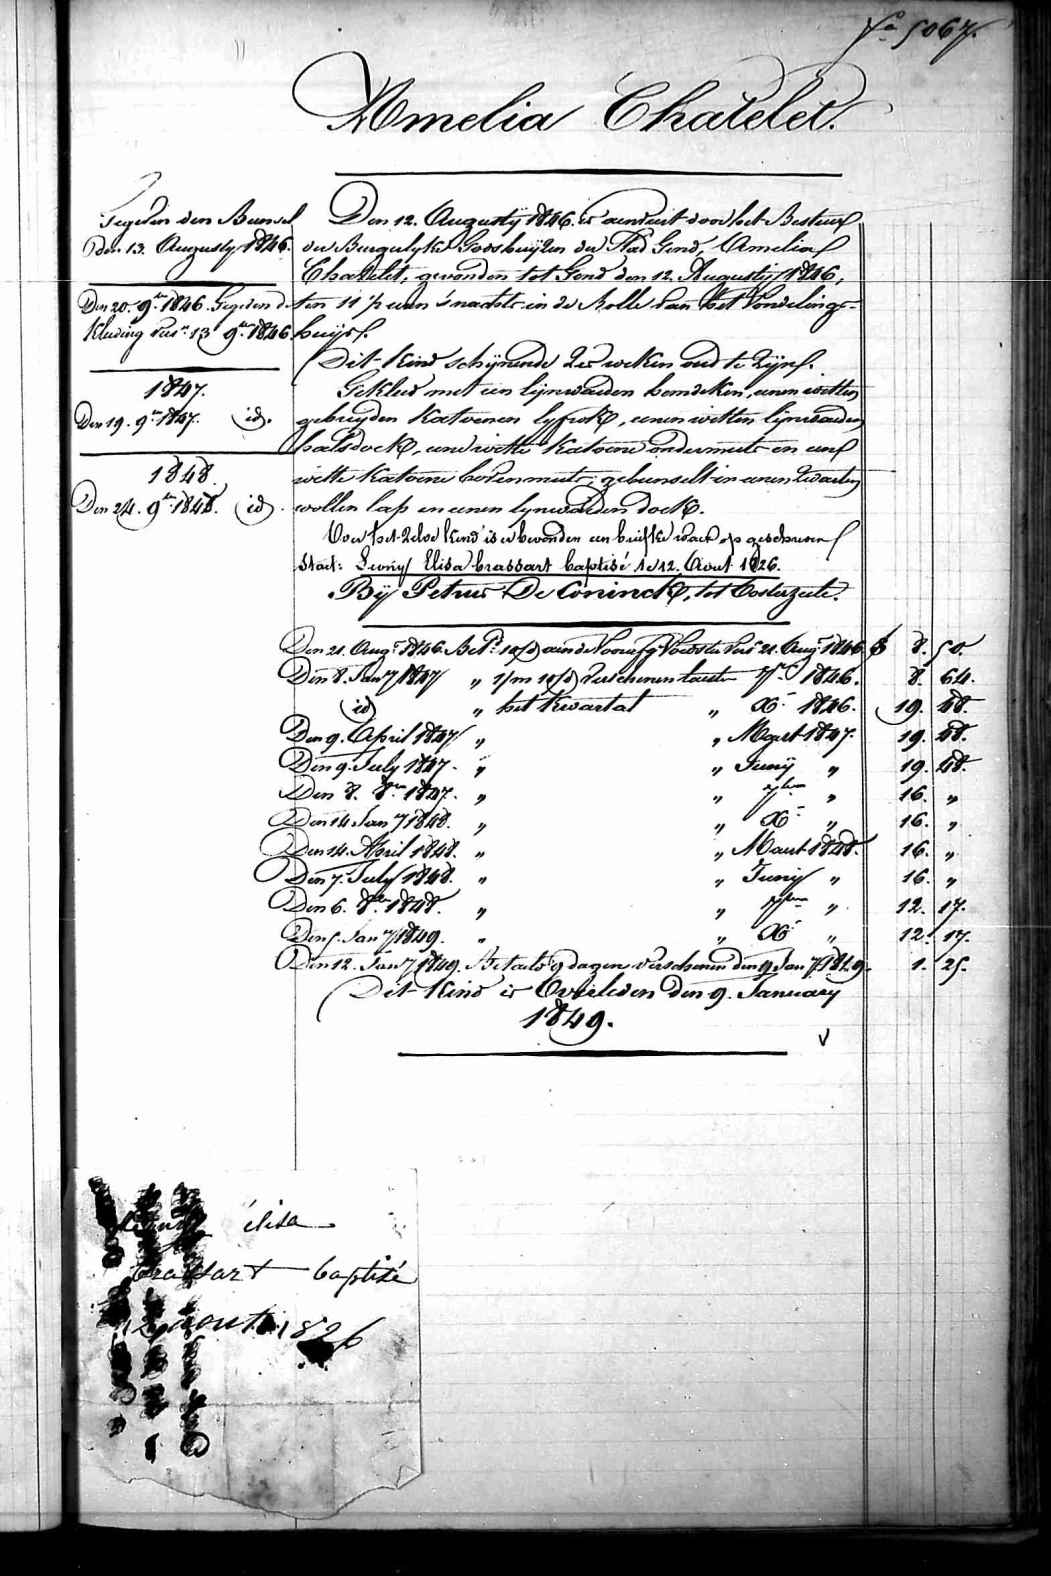 No 5067.
Amelia Chatelet.
Gegeven den Bunsel
Den 13. Augusty 1846.
Den 20. 9br 1846. Gegeven de
Kleeding 13 9br 1846.
1847.
Den 19. 9br 1847. id.
1848.
Den 24. 9br 1848. id.
Den 12. Augusty 1846. is aenveirt door het Bestuer
der Burgerlyke Godshuyzen der Stad Gend, Amelia
Chatelet, gevonden tot Gend den 12. Augusty 1846,
ten 11 ½ uren s'nachts in de Rolle van het Vondelings-
huys.
Dit kind schynende weken oud te zyn.
Gekleed met een lynwaeden hemdeken, eenen witten
gebreyden katoenen lyfrok, eenen witten lynwaeden
halsdoek, eene witte katoene ondermuts en eene
witte katoene bovenmuts, gebunselt in eenen zwarten
wollen lap en eenen lynwaeden doek.
Over het zelve kind is er bevonden een briefke waer op geschreven
staet: Elisa Crassart baptisé le 12. Aout 1826.
By Petrus De Coninck, tot Oosterzeele.
Den 21. Augt 1846. aen de Voedster 21. Augt 1846. 8. 50.
Den 8. Jany 1847 " verschenen 7br 1846. 8. 64.
id " het kwartal " Xr 1846. 19. 48.
Den 9. April 1847 " " Maert 1847. 19. 48.
Den 9. July 1847. " " Juny " 19. 48.
Den 8. 8br 1847. " " 7ber " 16. "
Den 14. Jany 1848. " " Xr " 16. "
Den 14. April 1848. " " Maert 1848. 16. "
Den 7. July 1848. " " Juny " 16. "
Den 6. 8br 1848. " " 7ber " 12. 17.
Den 5. Jany 1849. " " Xr " 12. 17.
Den 12. Jany 1849. Betaelt 9 dagen verschenen den 9 Jany 1849. 1. 25.
Dit Kind is Overleden den 9. January
1849.
élisa
Crassart baptisé
12 aout 1826